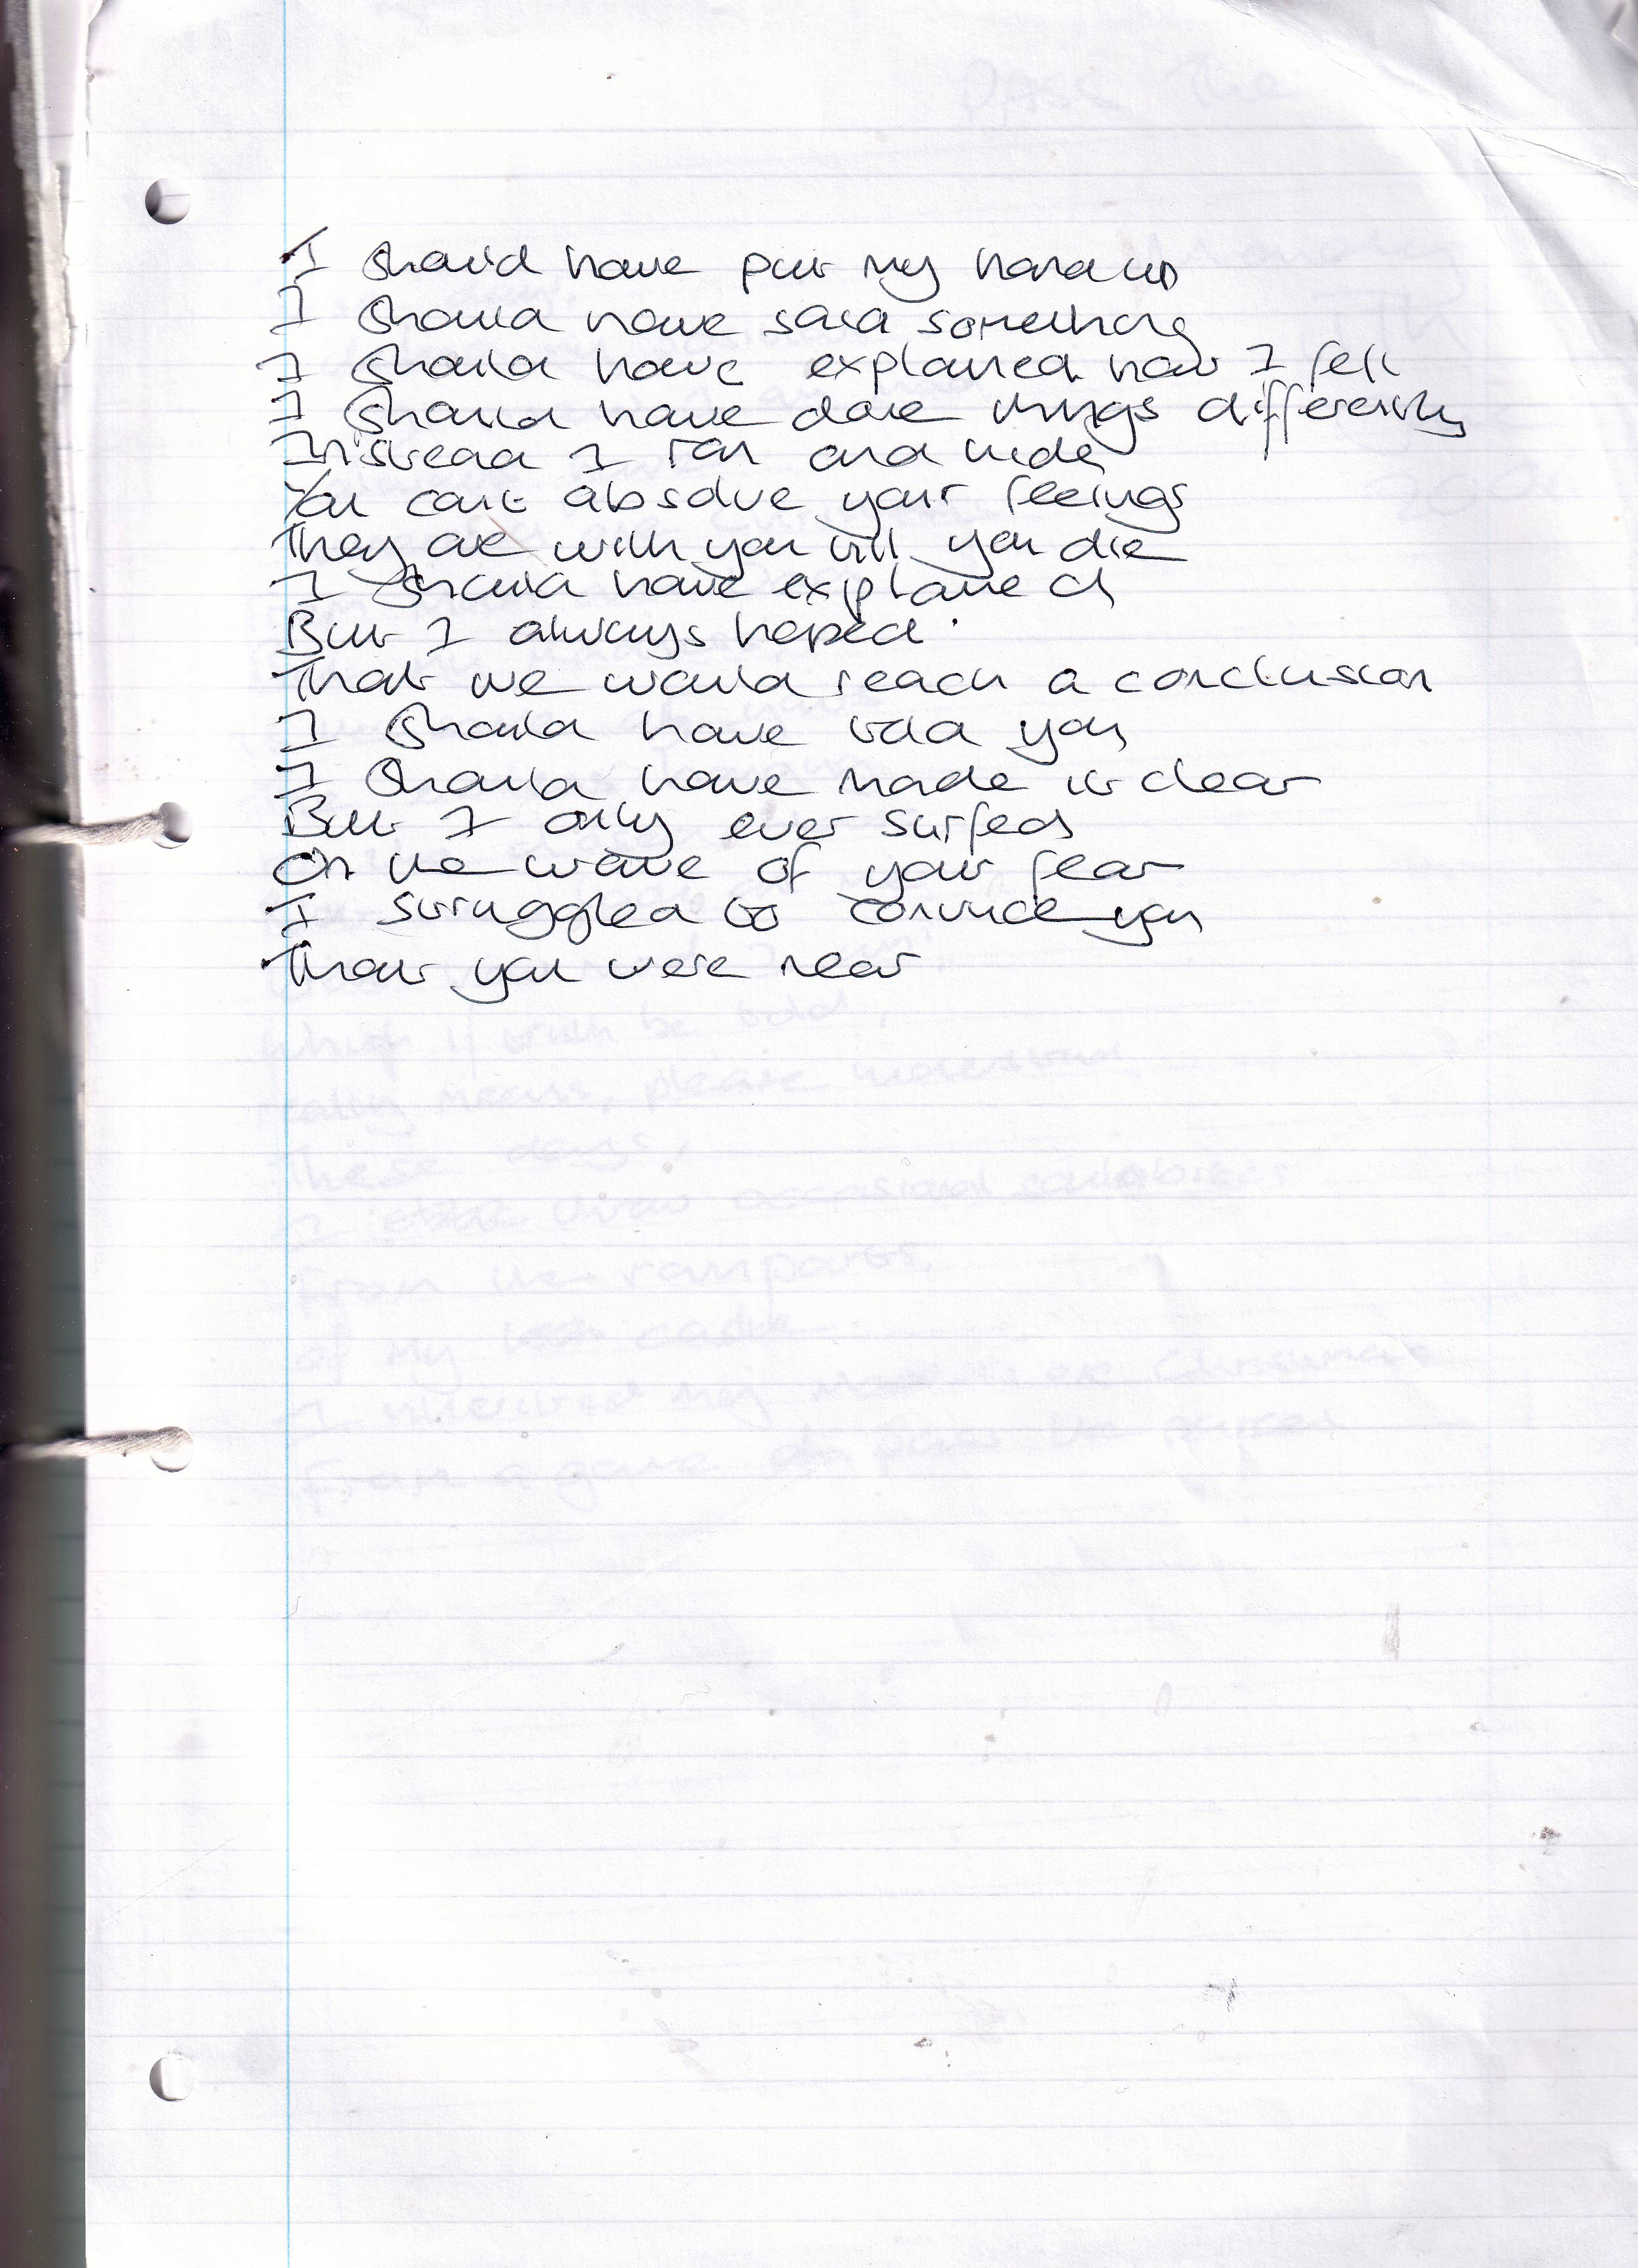 I should have put my hand up
I should have said something
I should have explained how I felt
I should have done things differently
Instead I ran and hide
You can't absolve your feelings
They are with you till you die
I should have explained
But I always hoped
That we would reach a conclusion
I should have told you
I should have made it clear
But I only ever surfed
On the wave of your fear
I struggled to convince you
That you were near